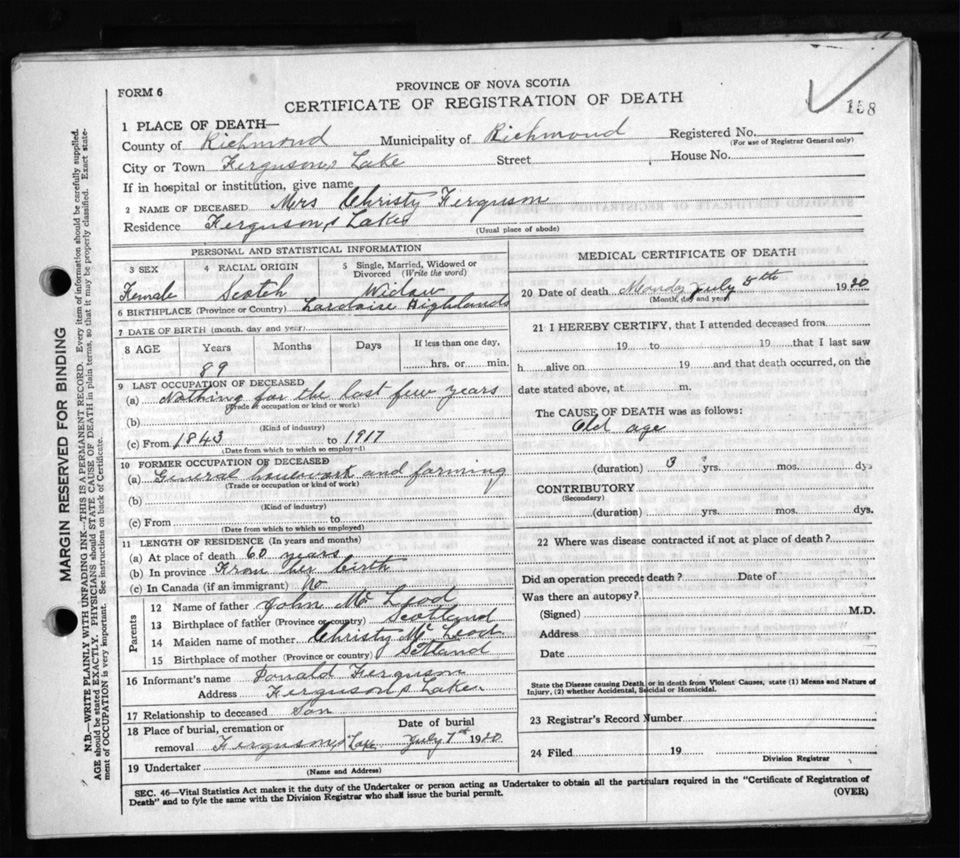 188
FORM 6
PROVINCE OF NOVA SCOTIA
CERTIFICATE OF REGISTRATION OF DEATH
1 PLACE OF DEATH—
County of Richmond Municipality of Richmond Registered No.
(For use of Registrar General only)
City or Town Fergusons Lake Street House No.
If in hospital or institution, give name
2 NAME OF DECEASED. Mrs Christy Ferguson
Residence Fergusons Lake
(Usual place of abode)
PERSONAL AND STATISTICAL INFORMATION
3 SEX 4 RACIAL ORIGIN 5 Single, Married, Widowed or Divorced (Write the word)
Female Scotch Widow
6 BIRTHPLACE (Province or Country) Lardoise Highlands
7 DATE OF BIRTH (month, day and year)
8 AGE Years Months Days If less than one day,
89 hrs. or min.
9 LAST OCCUPATION OF DECEASED
(a) Nothing for the last few years
(Trade or occupation or kind or work)
(b)
(Kind of industry)
(c) From 1843 to 1917
(Date from which to which so employed)
10 FORMER OCCUPATION OF DECEASED
(a) General housework and farming
(Trade or occupation or kind of work)
(b)
(Kind of industry)
(c) From to
(Date from which to which so employed)
11 LENGTH OF RESIDENCE (In years and months)
(a) At place of death 60 years
(b) In province From her birth
(c) In Canada (if an immigrant) No
Parents
12 Name of father John Mc Leod
13 Birthplace of father (Province or country) Scotland
14 Maiden name of mother Christy Mc Leod
15 Birthplace of mother (Province or country) Scotland
16 Informant's name Donald Ferguson
Address Ferguson's Lake
17 Relationship to deceased Son
18 Place of burial, cremation or removal Fergusons Lake Date of burial July 7th 1920
19 Undertaker
(Name and Address)
MEDICAL CERTIFICATE OF DEATH
20 Date of death Monday July 5th 1920
(Month, day and year)
21 I HEREBY CERTIFY, that I attended deceased from
19 to 19 that I last saw
h alive on 19 and that death occurred, on the
date stated above, at m.
The CAUSE OF DEATH was as follows:
Old age
(duration) 3 yrs. mos. dys
CONTRIBUTORY
(Secondary)
(duration) yrs. mos. dys.
22 Where was disease contracted if not at place of death?
Did an operation precede death? Date of
Was there an autopsy?
(Signed) M.D.
Address
Date
State the Disease causing Death, or in death from Violent Causes, state (1) Means and Nature of
Injury, (2) whether Accidental, Suicidal or Homicidal.
23 Registrar's Record Number
24 Filed 19
Division Registrar
SEC. 46—Vital Statistics Act makes it the duty of the Undertaker or person acting as Undertaker to obtain all the particulars required in the "Certificate of Registration of
Death" and to fyle the same with the Division Registrar who shall issue the burial permit.
(OVER)
MARGIN RESERVED FOR BINDING
N.B.—WRITE PLAINLY WITH UNFADING INK—THIS IS A PERMANENT RECORD. Every item of information should be carefully supplied.
AGE should be stated EXACTLY. PHYSICIANS should STATE CAUSE OF DEATH in plain terms, so that it may be properly classified. Exact state-
ment of OCCUPATION is very important. See instructions on back of Certificate.